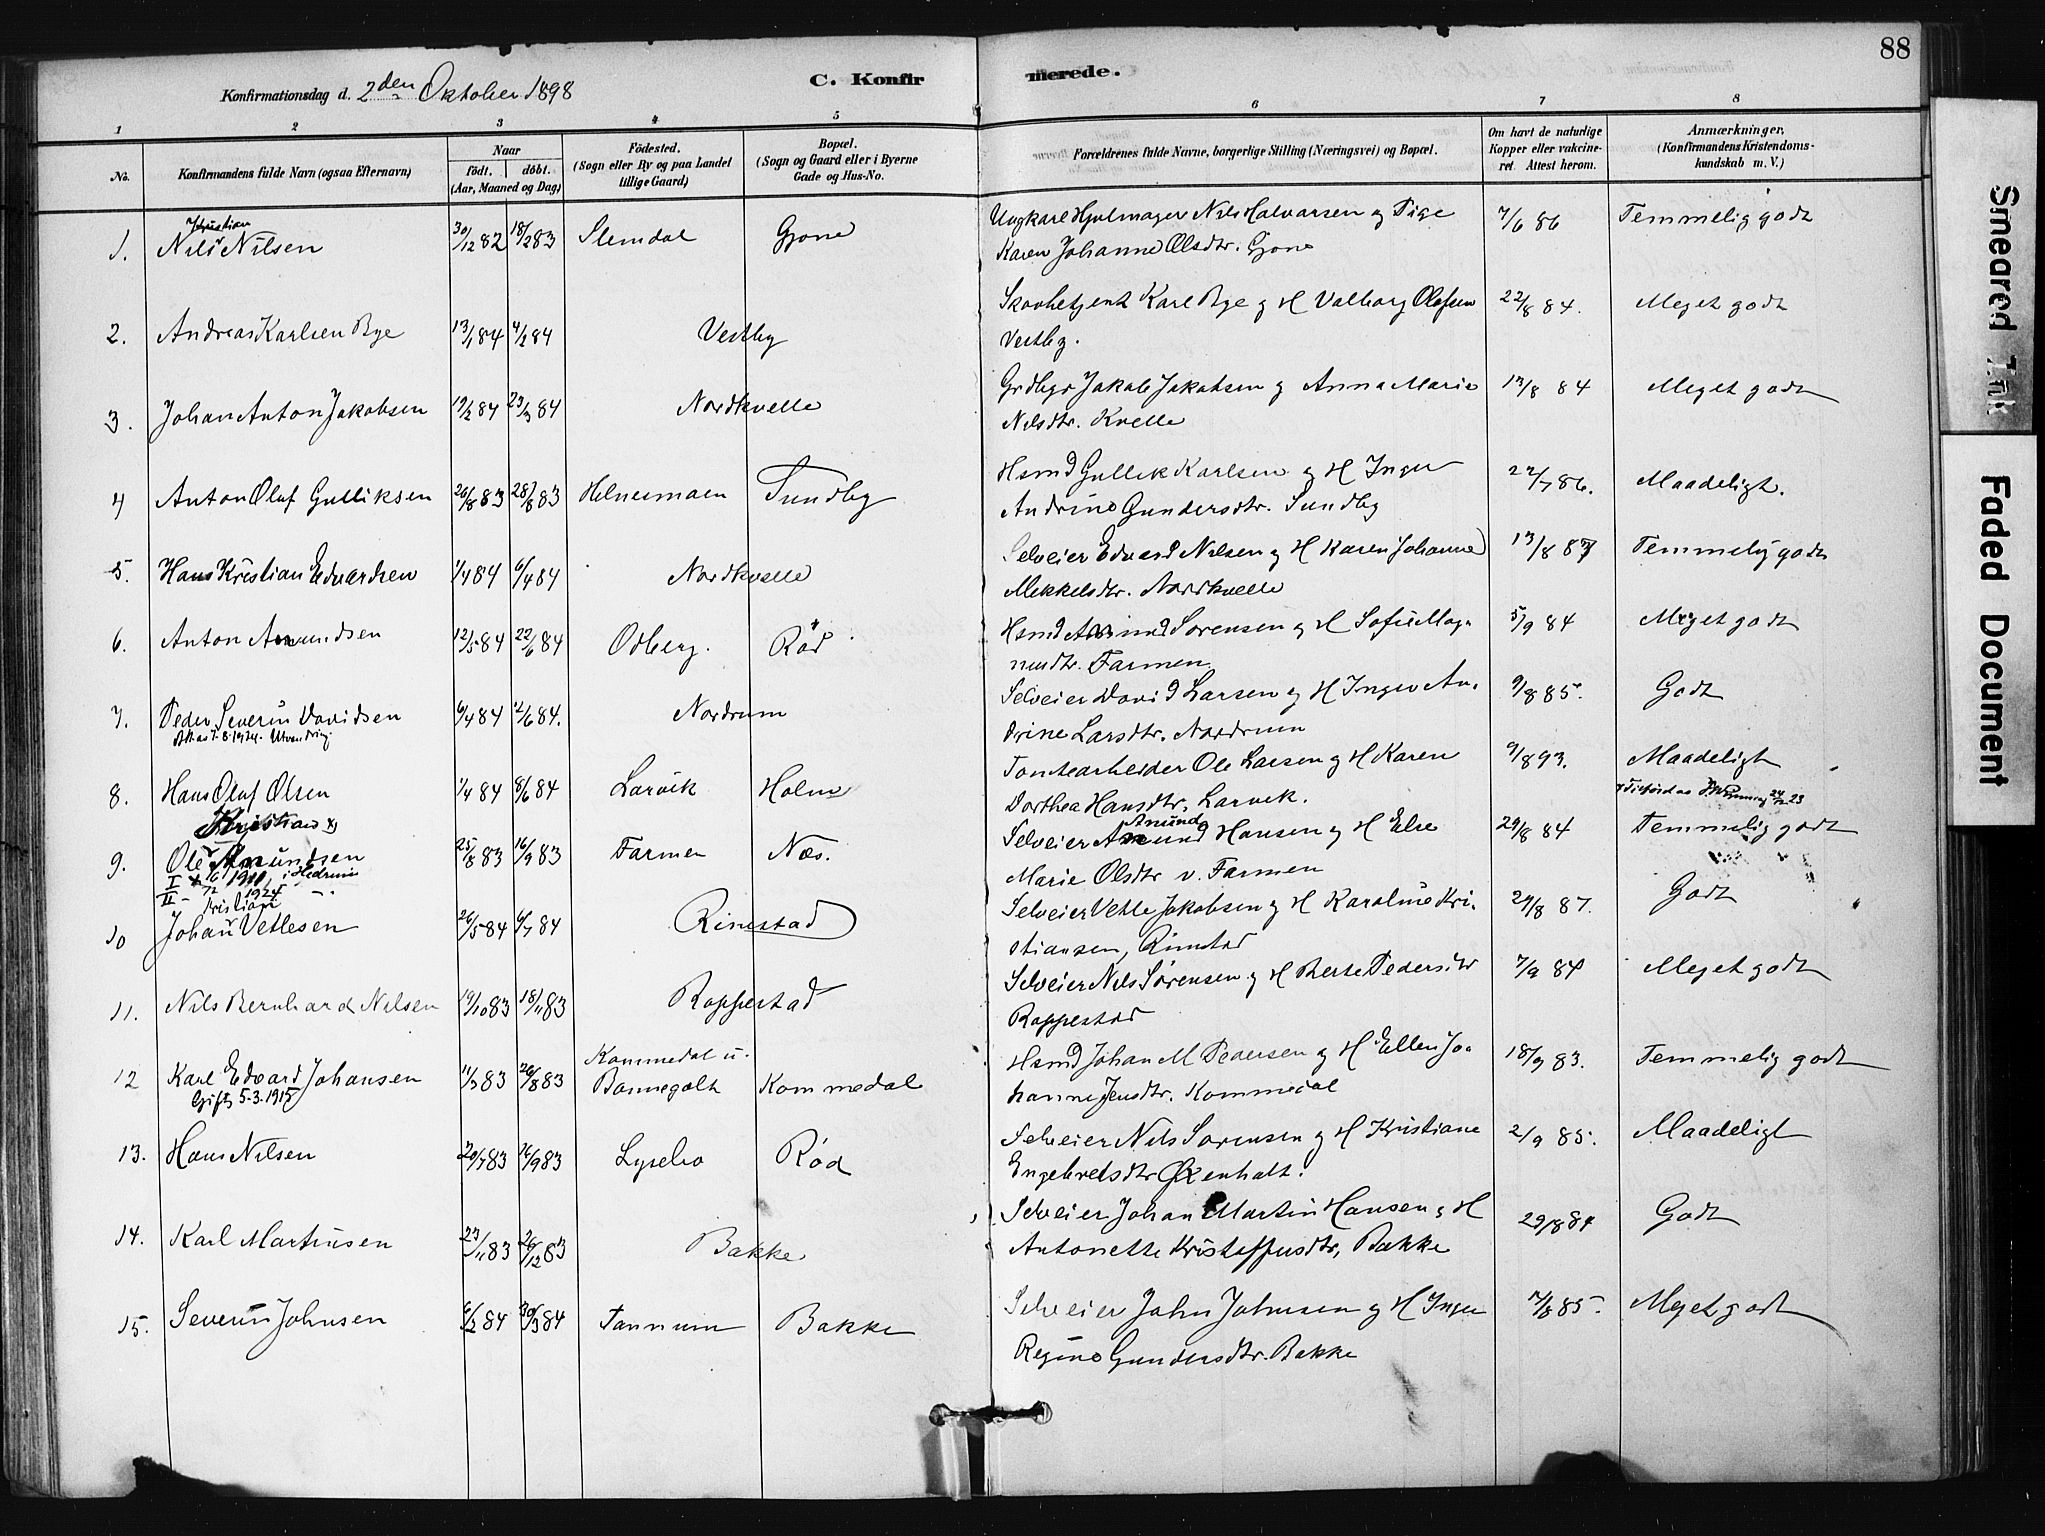 88
Konfirmationsdag d. 2den Oktober 1898
C. Konfirmerede.
1 2 3 4 5 6 7 8
No.
Konfirmandens fulde Navn (ogsaa Efternavn)
Naar
födt. döbt.
(Aar, Maaned og Dag)
Födested.
(Sogn eller By og paa Landet
tillige Gaard)
Bopæl.
(Sogn og Gaard eller i Byerne
Gade og Hus-No.
Forældrenes fulde Navne, borgerlige Stilling (Næringsvei) og Bopæl.
Om havt de naturlige
Kopper eller vakcine-
ret. Attest herom.
Anmærkninger,
(Konfirmandens Kristendoms-
kundskab m. V.)
Kristian
1. Nils Nilsen 30/12 82 18/2 83 Slemdal Gjone Ungkarl Hjulmager Nils Halvorsen og Pige 7/6 86 Temmelig godt
Karen Johanne Olsdtr. Gjone
2. Andreas Karlsen Bye 13/1 84 4/2 84 Vestby Skovbetjent Karl Bye og H Valborg Olafsen 22/8 84. Meget godt
Vestby.
3. Johan Anton Jakobsen 19/2 84 23/3 84 Nordkvelle Grdbgr Jakob Jakobsen og Anna Marie 13/8 84 Meget godt
Nilsdtr. Kvelle
4 Anton Oluf Gulliksen 26/8 83 Sundby Hsmd Gullik Karlsen og H Inger 22/7 86. Maadeligt.
Andrine Gundersdtr. Sundby
5. Hans Kristian Edvardsen 1/4 84 6/4 84 Nordkvelle Selveier Edvard Nilsen og H Karen Johanne 13/8 87 Temmelig godt
Mekkelsdtr. Nordkvelle
6. Anton Amundsen 12/5 84 22/6 84 Odberg. Röd Hsmd Amund Sorensen og H Sofie Mag-
nusdtr. Farmen 5/9 84 Meget godt
7. Peder Severin Davidsen 6/4 84 84. Nordrum Selveier David Larsen og H Inger An- 9/8 85. Godt
Utvandring.
drine Larsdtr. Nordrum
8. Hans Oluf Olsen 1/4 84 8/6 84 Larvik Holm Tomtearbeider Ole Larsen og H Karen 9/8 93. Maadeligt
Dorthea Hansdtr. Larvik.
Kristian x)
9. Ole Amundsen 25/8 83 16/9 83 Farmen Næs. Selveier Amund Hansen og H Else 29/8 84 Temmelig godt
Amund
Marie Olsdtr v. Farmen
1910, i Hedrum
II 1924
Kristian
10 Johan Vetlesen 26/5 84 6/7 84 Rimstad Selveier Vetle Jakobsen og H Karoline Kri- 29/8 87. Godt
stiansen, Rimstad
11. Nils Bernhard Nilsen 19/10 83 18/11 83 Roppestad Selveier Nils Sörensen og H Berte Pedersdtr 7/9 84 Meget godt
Roppestad
12 Karl Edvard Johansen 11/7 83 26/8 83 Kommedal u.
Bonnegolt Kommedal Hsmd Johan M Pedersen og H Ellen Jo- 18/9 83. Temmelig godt
Gift 5.3.1915
hanne Jensdtr. Kommedal
13. Hans Nilsen 20/7 83 16/9 83 Lysebo Röd Selveier Nils Sorensen og H Kristiane 2/9 85. Maadeligt
Engebretsdtr Oxenholt.
14. Karl Martinsen 23/11 83 26/12 83 Bakke Selveier Johan Martin Hansen og H 29/8 84 Godt
Antonette Kristoffersdtr, Bakke
15. Severin Johnsen 6/2 84 30/3 84 Tannum Bakke Selveier John Johnsen og H Inger 7/8 85. Meget godt
Regine Gundersdtr. Bakke
Smeared Ink
Faded Document